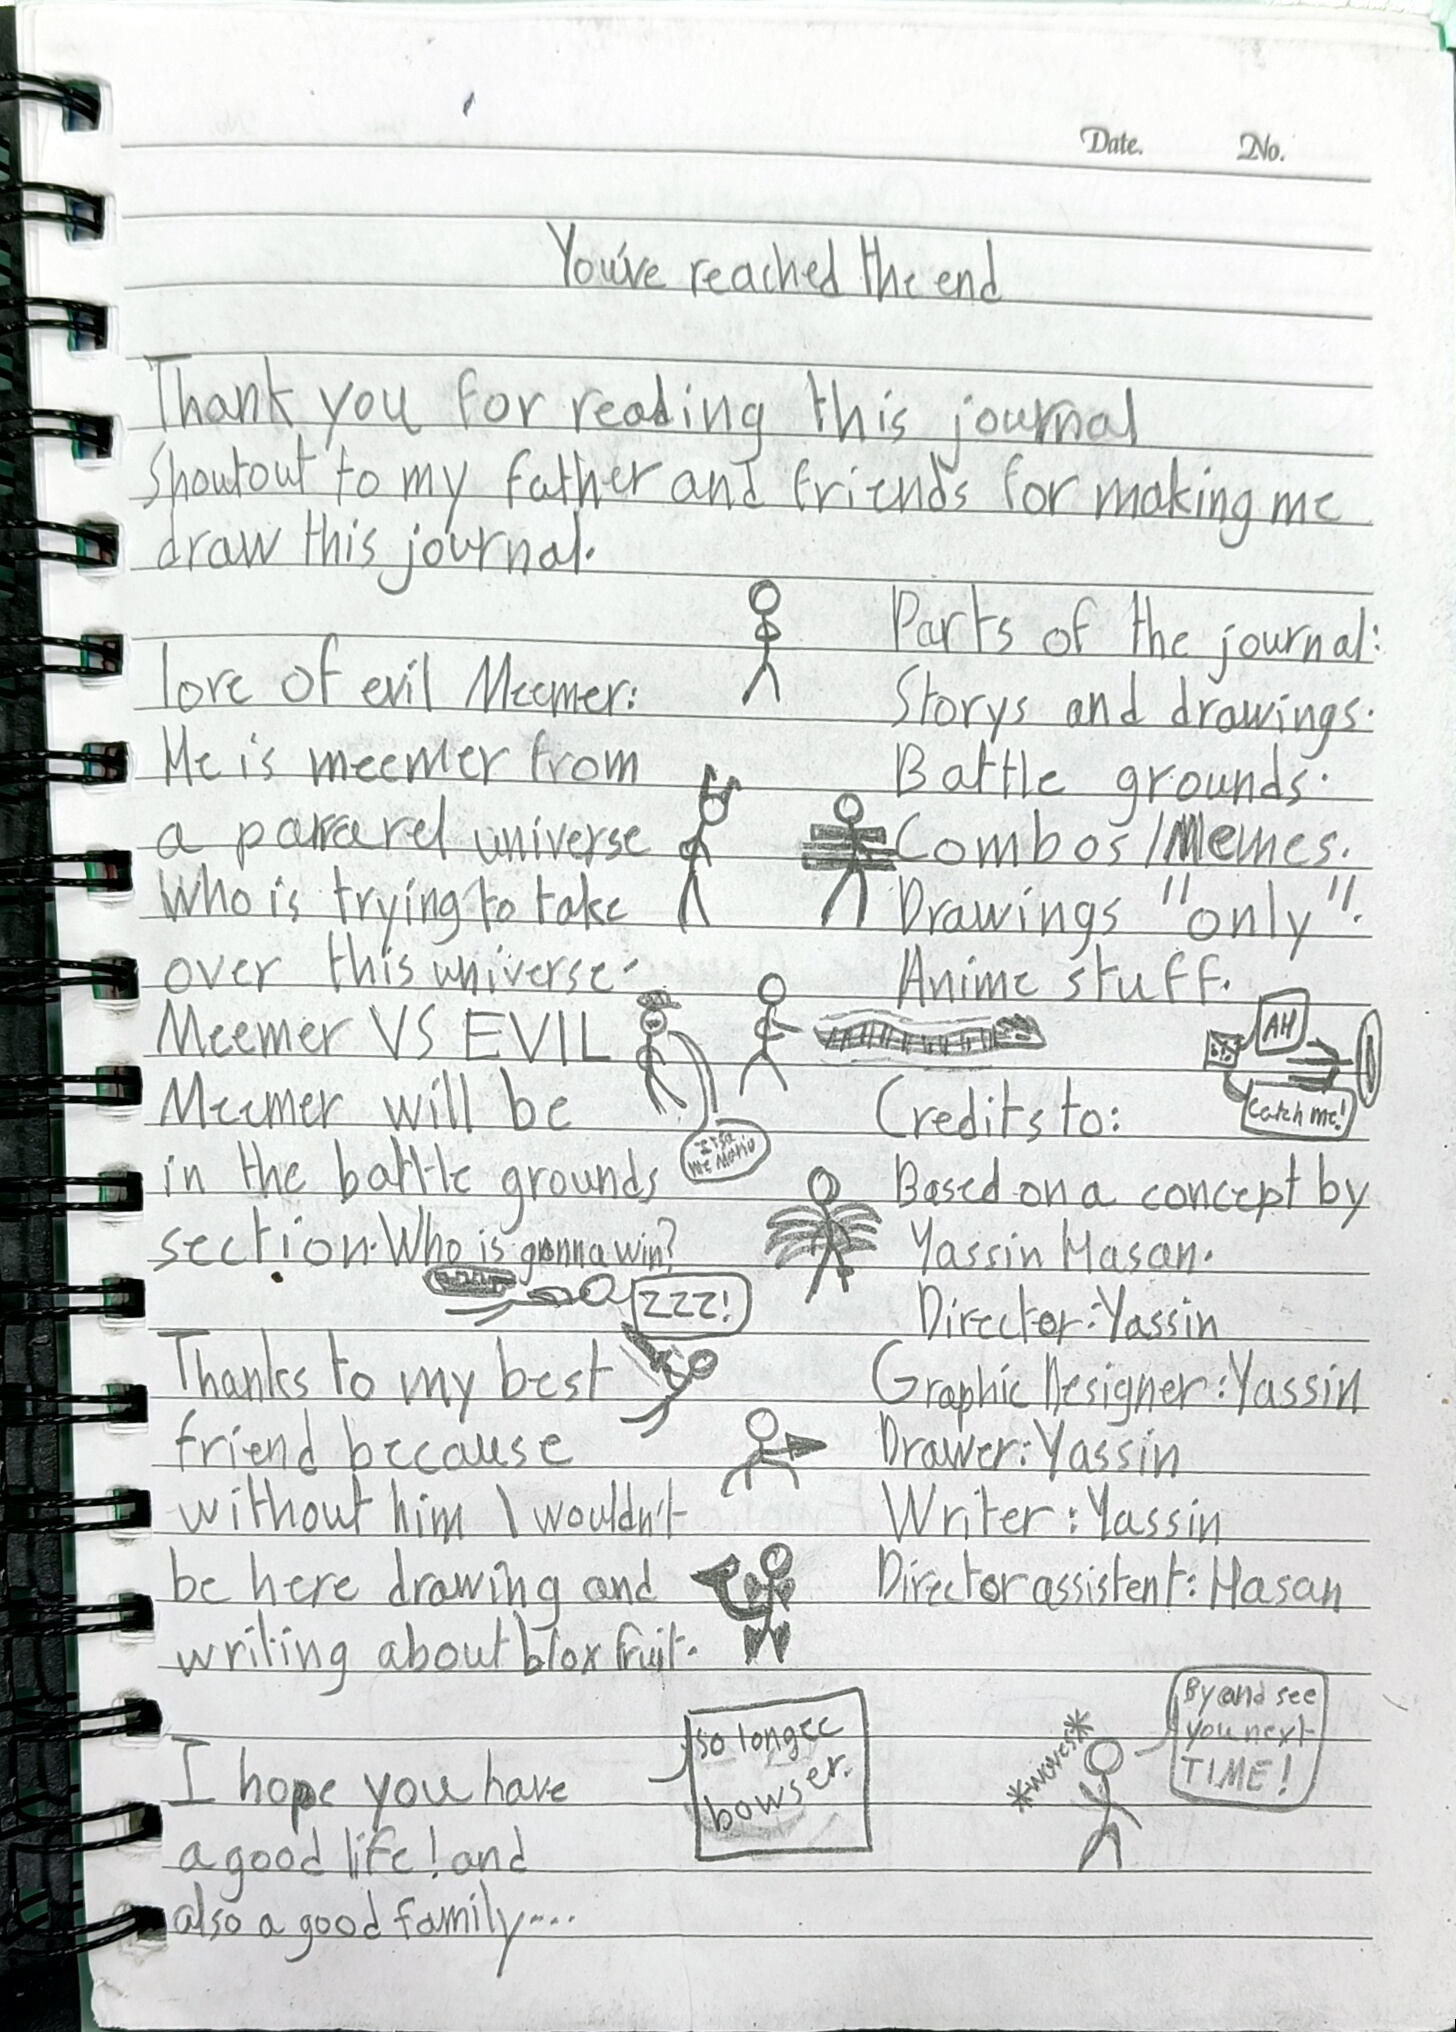 Date. No.
You've reached the end
Thank you for reading this journal
Shoutout to my father and friends for making me
draw this journal.
lore of evil Meemer:
He is meemer from
a pararel universe
who is trying to take
over this universe.
Meemer VS EVIL
Meemer will be
in the battle grounds
section. Who is gonna win?
It'sa
me Mario
ZZZ!
Thanks to my best
friend because
without him I wouldn't
be here drawing and
writing about blox fruit.
I hope you have
a good life! and
also a good family....
so longee
bowser.
Parts of the journal:
Storys and drawings.
Battle grounds.
Combos/Memes.
Drawings "only".
Anime stuff.
AH
Catch me!
Credits to:
Based on a concept by
Yassin Hasan.
Director: Yassin
Graphic Designer: Yassin
Drawer: Yassin
Writer: Yassin
Director assistent: Hasan
*waves*
By and see
you next
TIME!